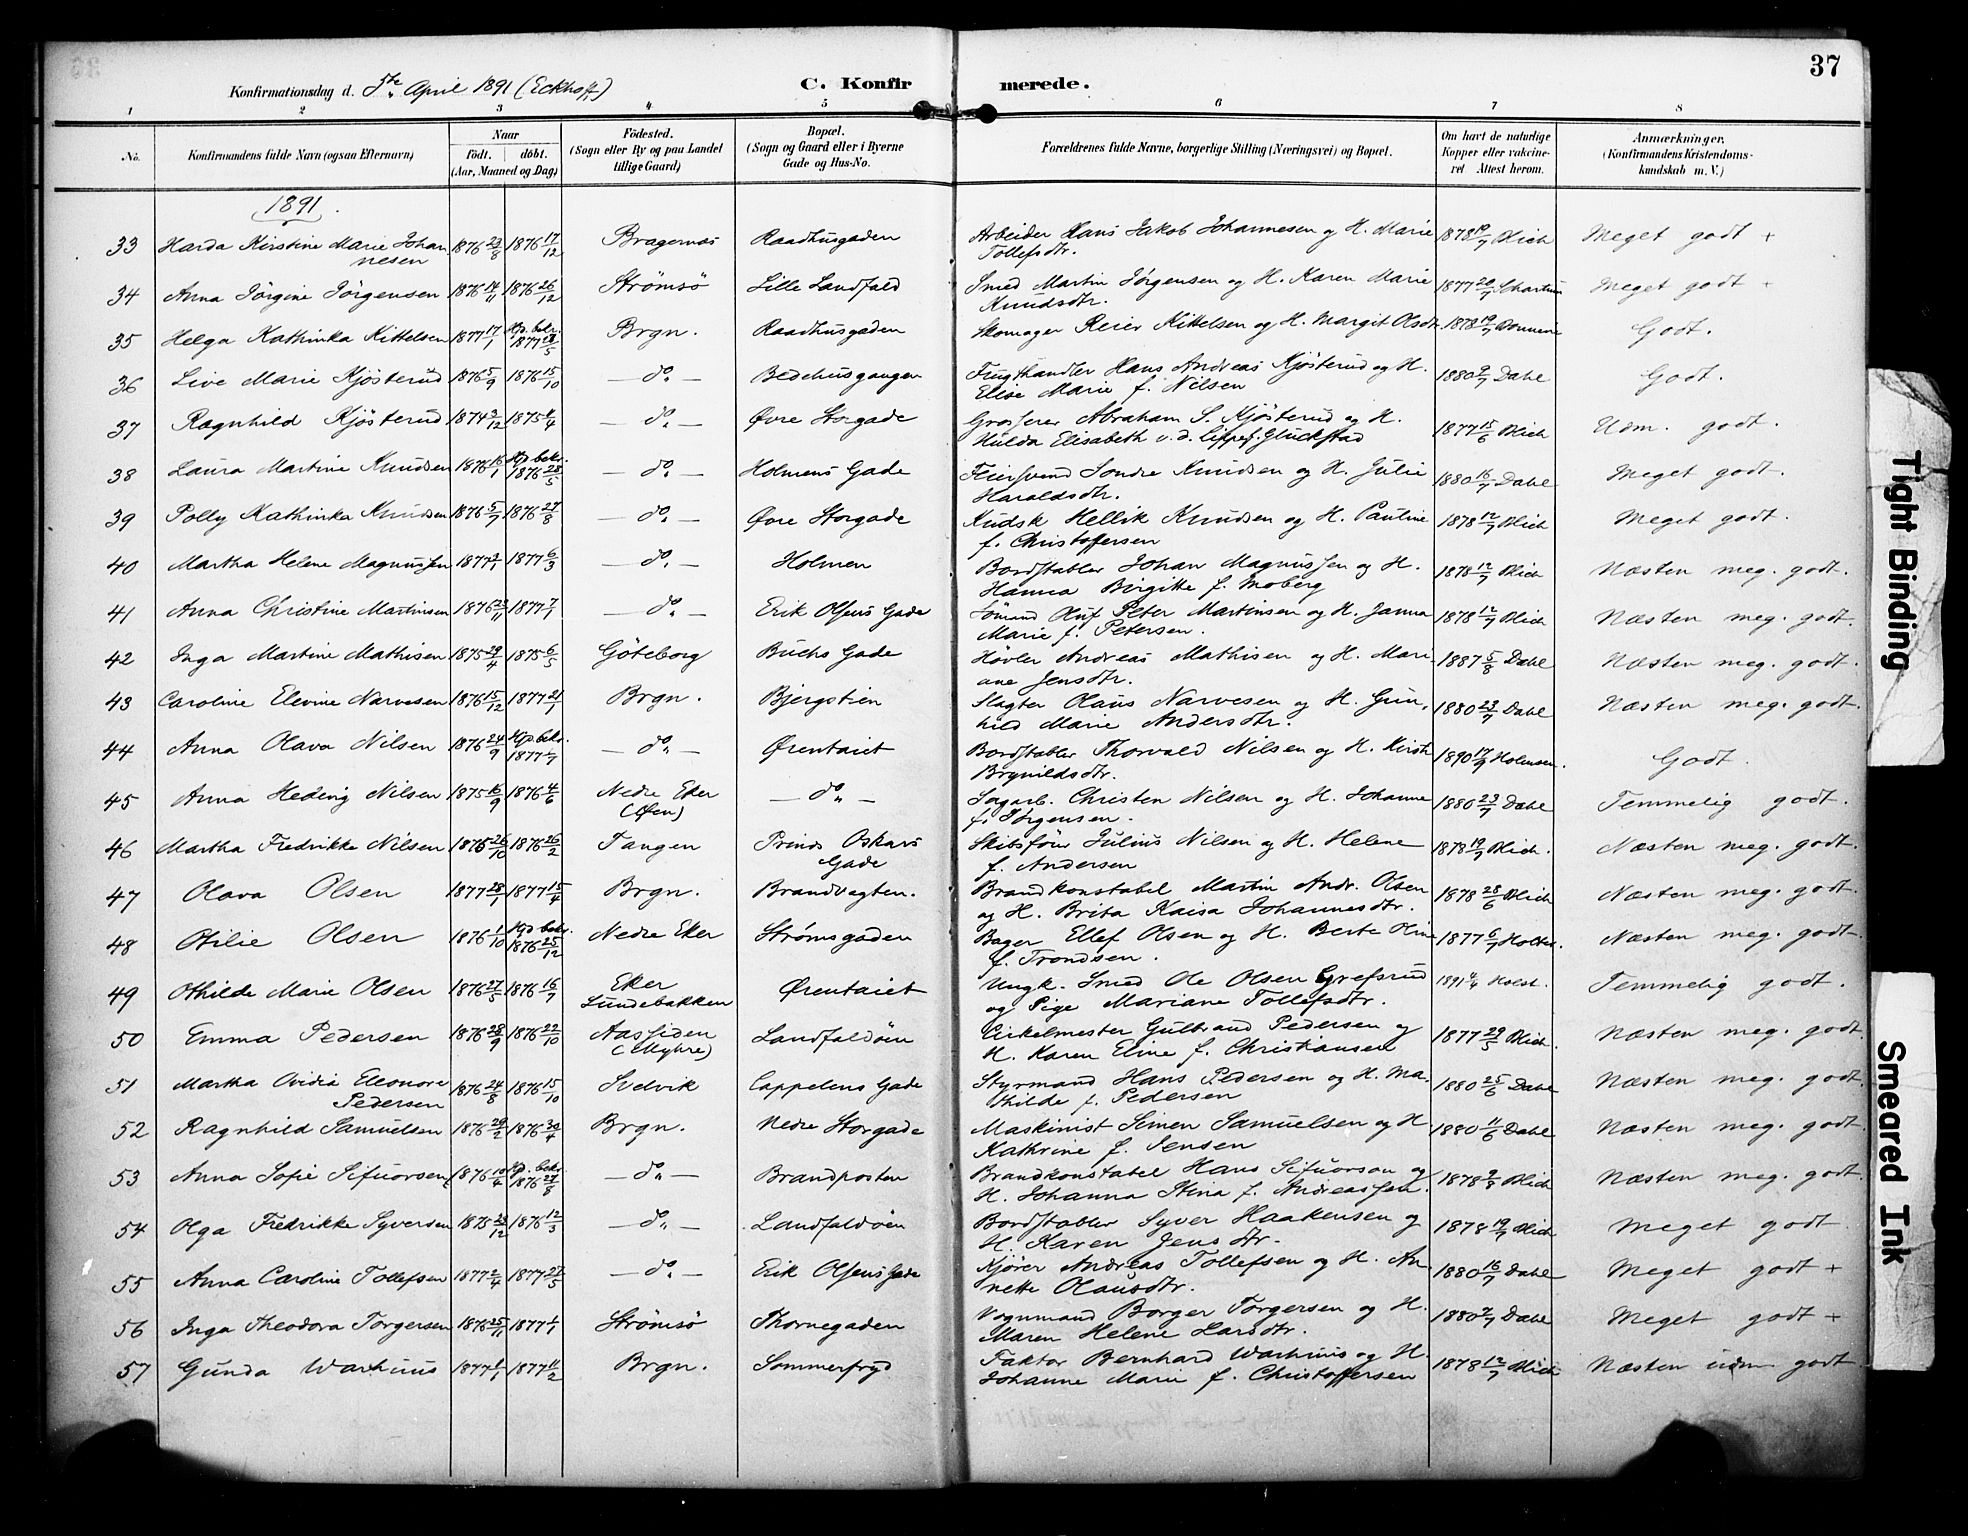 37
Konfirmationsdag d. 5te April 1891 (Eckhoff)
C. Konfirmerede.
1 2 3 4 5 6 7 8
No. | Konfirmandens fulde Navn (ogsaa Efternavn) | Naar født. døbt. (Aar, Maaned og Dag) | Födested. (Sogn eller By og paa Landet tillige Gaard) | Bopæl. (Sogn og Gaard eller i Byerne Gade og Hus-No. | Forældrenes fulde Navne, borgerlige Stilling (Næringsvei) og Bopæl. | Om havt de naturlige Kopper eller vakcineret Attest herom. | Anmærkninger. (Konfirmandens Kristendomskundskab m. V.)
1891.
33 Harda Kirstine Marie Johannesen 1876 23/8 1876 17/12 Bragernæs Raadhusgaden Arbeider Hans Jakob Johannesen og H. Marie Tollefsdtr. 1878 19/7 Blich Meget godt +
34 Anna Jörgine Jörgensen 1876 14/11 1876 26/12 Strömsö Lille Landfald Smed Martin Jörgensen og H. Karen Marie Knudsdtr. 1877 20/7 Schartum Meget godt +
35 Helga Kathinka Kittelsen 1877 17/1 Hjp. bekr. 1877 28/5 Brgn. Raadhusgaden Skomager Reier Kittelsen og H. Margit Olsdt. 1878 19/7 Godt.
36 Live Marie Kjösterud 1876 5/9 1876 15/10 — do. — Bedehusgangen Frugthandler Hans Andreas Kjösterud og H. Elise Marie f. Nilsen 1880 9/7 Dahl Godt.
37 Ragnhild Kjösterud 1874 3/12 1875 4/4 — do. — Øvre Storgade Grosserer Abraham S. Kjösterud og H. Hulda Elisabeth v. d. Lippe f. Gluckstad 1877 15/6 Blich Udm. godt.
38 Laura Martine Knudsen 1876 16/1 Hjp bekr. 1876 28/5 — do. — Holmens Gade Feiersvend Sondre Knudsen og H. Julie Haraldsdtr. 1880 16/7 Dahl Meget godt.
39 Polly Kathinka Knudsen 1876 5/7 1876 27/8 — do. — Øvre Storgade Kudsk Hellik Knudsen og H. Pauline f. Christoffersen 1878 12/7 Blich Meget godt.
40 Martha Helene Magnussen 1877 3/1 1877 6/3 — do. — Holmen Bordstabler Johan Magnussen og H. Hanna Birgitte f. Moberg 1878 12/7 Blich Næsten meg. godt.
41 Anna Christine Martinsen 1876 23/11 1877 7/1 — do. — Erik Olsens Gade Sömand Oluf Peter Martinsen og H. Janna Marie f. Petersen. 1878 12/7 Blich Næsten meg. godt.
42 Inga Martine Mathisen 1875 29/4 1875 6/5 Göteborg Buchs Gade Høvler Andreas Mathisen og H. Mariane Jensdtr. 1887 5/8 Dahl Næsten meg. godt.
43 Caroline Elevine Narvesen 1876 15/12 1877 21/1 Brgn. Bjergstien Slagter Olaus Narvesen og H. Gunhild Marie Andersdtr. 1880 23/7 Dahl Næsten meg. godt.
44 Anna Olava Nilsen 1876 24/9 Hjp bekr. 1877 1/7 — do. — Ørentaiet Bordstabler Thorvald Nilsen og H. Kirsti Brynildsdtr. 1890 17/9 Holmsen. Godt.
45 Anna Hedvig Nilsen 1875 16/9 1876 4/6 Nedre Eker (Øren) — do. — Sagarb. Christen Nilsen og H. Johanne f. Jörgensen. 1880 23/7 Dahl Temmelig godt.
46 Martha Fredrikke Nilsen 1875 26/10 1876 26/2 Tangen Prinds Oskars Gade Skibsförer Julius Nilsen og H. Helene f. Andersen 1878 19/7 Blich. Næsten meg. godt.
47 Olava Olsen 1877 28/1 1877 15/4 Brgn. Brandvagten. Brandkonstabel Martin Andr. Olsen og H. Brita Kaisa Johannesdtr. 1878 28/6 Blich Næsten meg. godt.
48 Otilie Olsen 1876 1/10 Hjp bekr. 1876 25/12 Nedre Eker Strömsgaden Bager Ellef Olsen og H. Berte Oline f. Trondsen. 1877 6/7 Holter. Næsten meg. godt.
49 Othilde Marie Olsen 1876 27/5 1876 16/7 Eker Lundebakken Ørentaiet Ungk. Smed Ole Olsen Grefsrud og Pige Mariane Tollefsdtr. 1891 4/4 Holst. Temmelig godt.
50 Emma Pedersen 1876 28/9 1876 22/10 Aassiden (Myhre) Landfaldöen Cirkelmester Gulbrand Pedersen og H. Karen Eline f. Christiansen 1877 29/5 Blich. Næsten meg. godt.
51 Martha Ovidia Eleonore Pedersen 1876 24/8 1876 15/10 Svelvik Cappelens Gade Styrmand Hans Pedersen og H. Mathilde f. Pedersen 1880 25/6 Dahl Næsten meg. godt.
52 Ragnhild Samuelsen 1876 29/2 1876 30/4 Brgn. Nedre Storgade Maskinist Simen Samuelsen og H Kathrine f. Jensen 1880 11/6 Dahl Næsten meg. godt.
53 Anna Sofie Sifuorsen 1876 10/4 Hjp. bekr. 1876 27/8 — do. — Brandposten Brandkonstabel Hans Sifuorson og H. Johanna Stina f. Andreassen. 1878 9/8 Blich Næsten meg. godt.
54 Olga Fredrikke Syversen 1875 23/12 1876 12/3 — do. — Landfaldöen Bordstabler Syver Haakensen og H. Karen Jensdtr. 1878 19/7 Blich Meget godt
55 Anna Caroline Tollefsen 1877 2/4 1877 27/5 — do. — Erik Olsens Gade Kjører Andreas Tollefsen og H. Annette Olausdtr. 1880 16/7 Dahl Meget godt +
56 Inga Theodora Torgersen 1876 25/11 1877 1/1 Strömsö Thornegaden Vognmand Borger Torgersen og H. Maren Helene Larsdtr. 1880 2/7 Dahl Meget godt +
57 Gunda Warhuus 1877 1/1 1877 11/2 Brgn. Sommerfryd Faktor Bernhard Warhuus og H. Johanne Marie f. Christoffersen 1878 12/7 Blich Næsten udm godt
Tight Binding
Smeared Ink